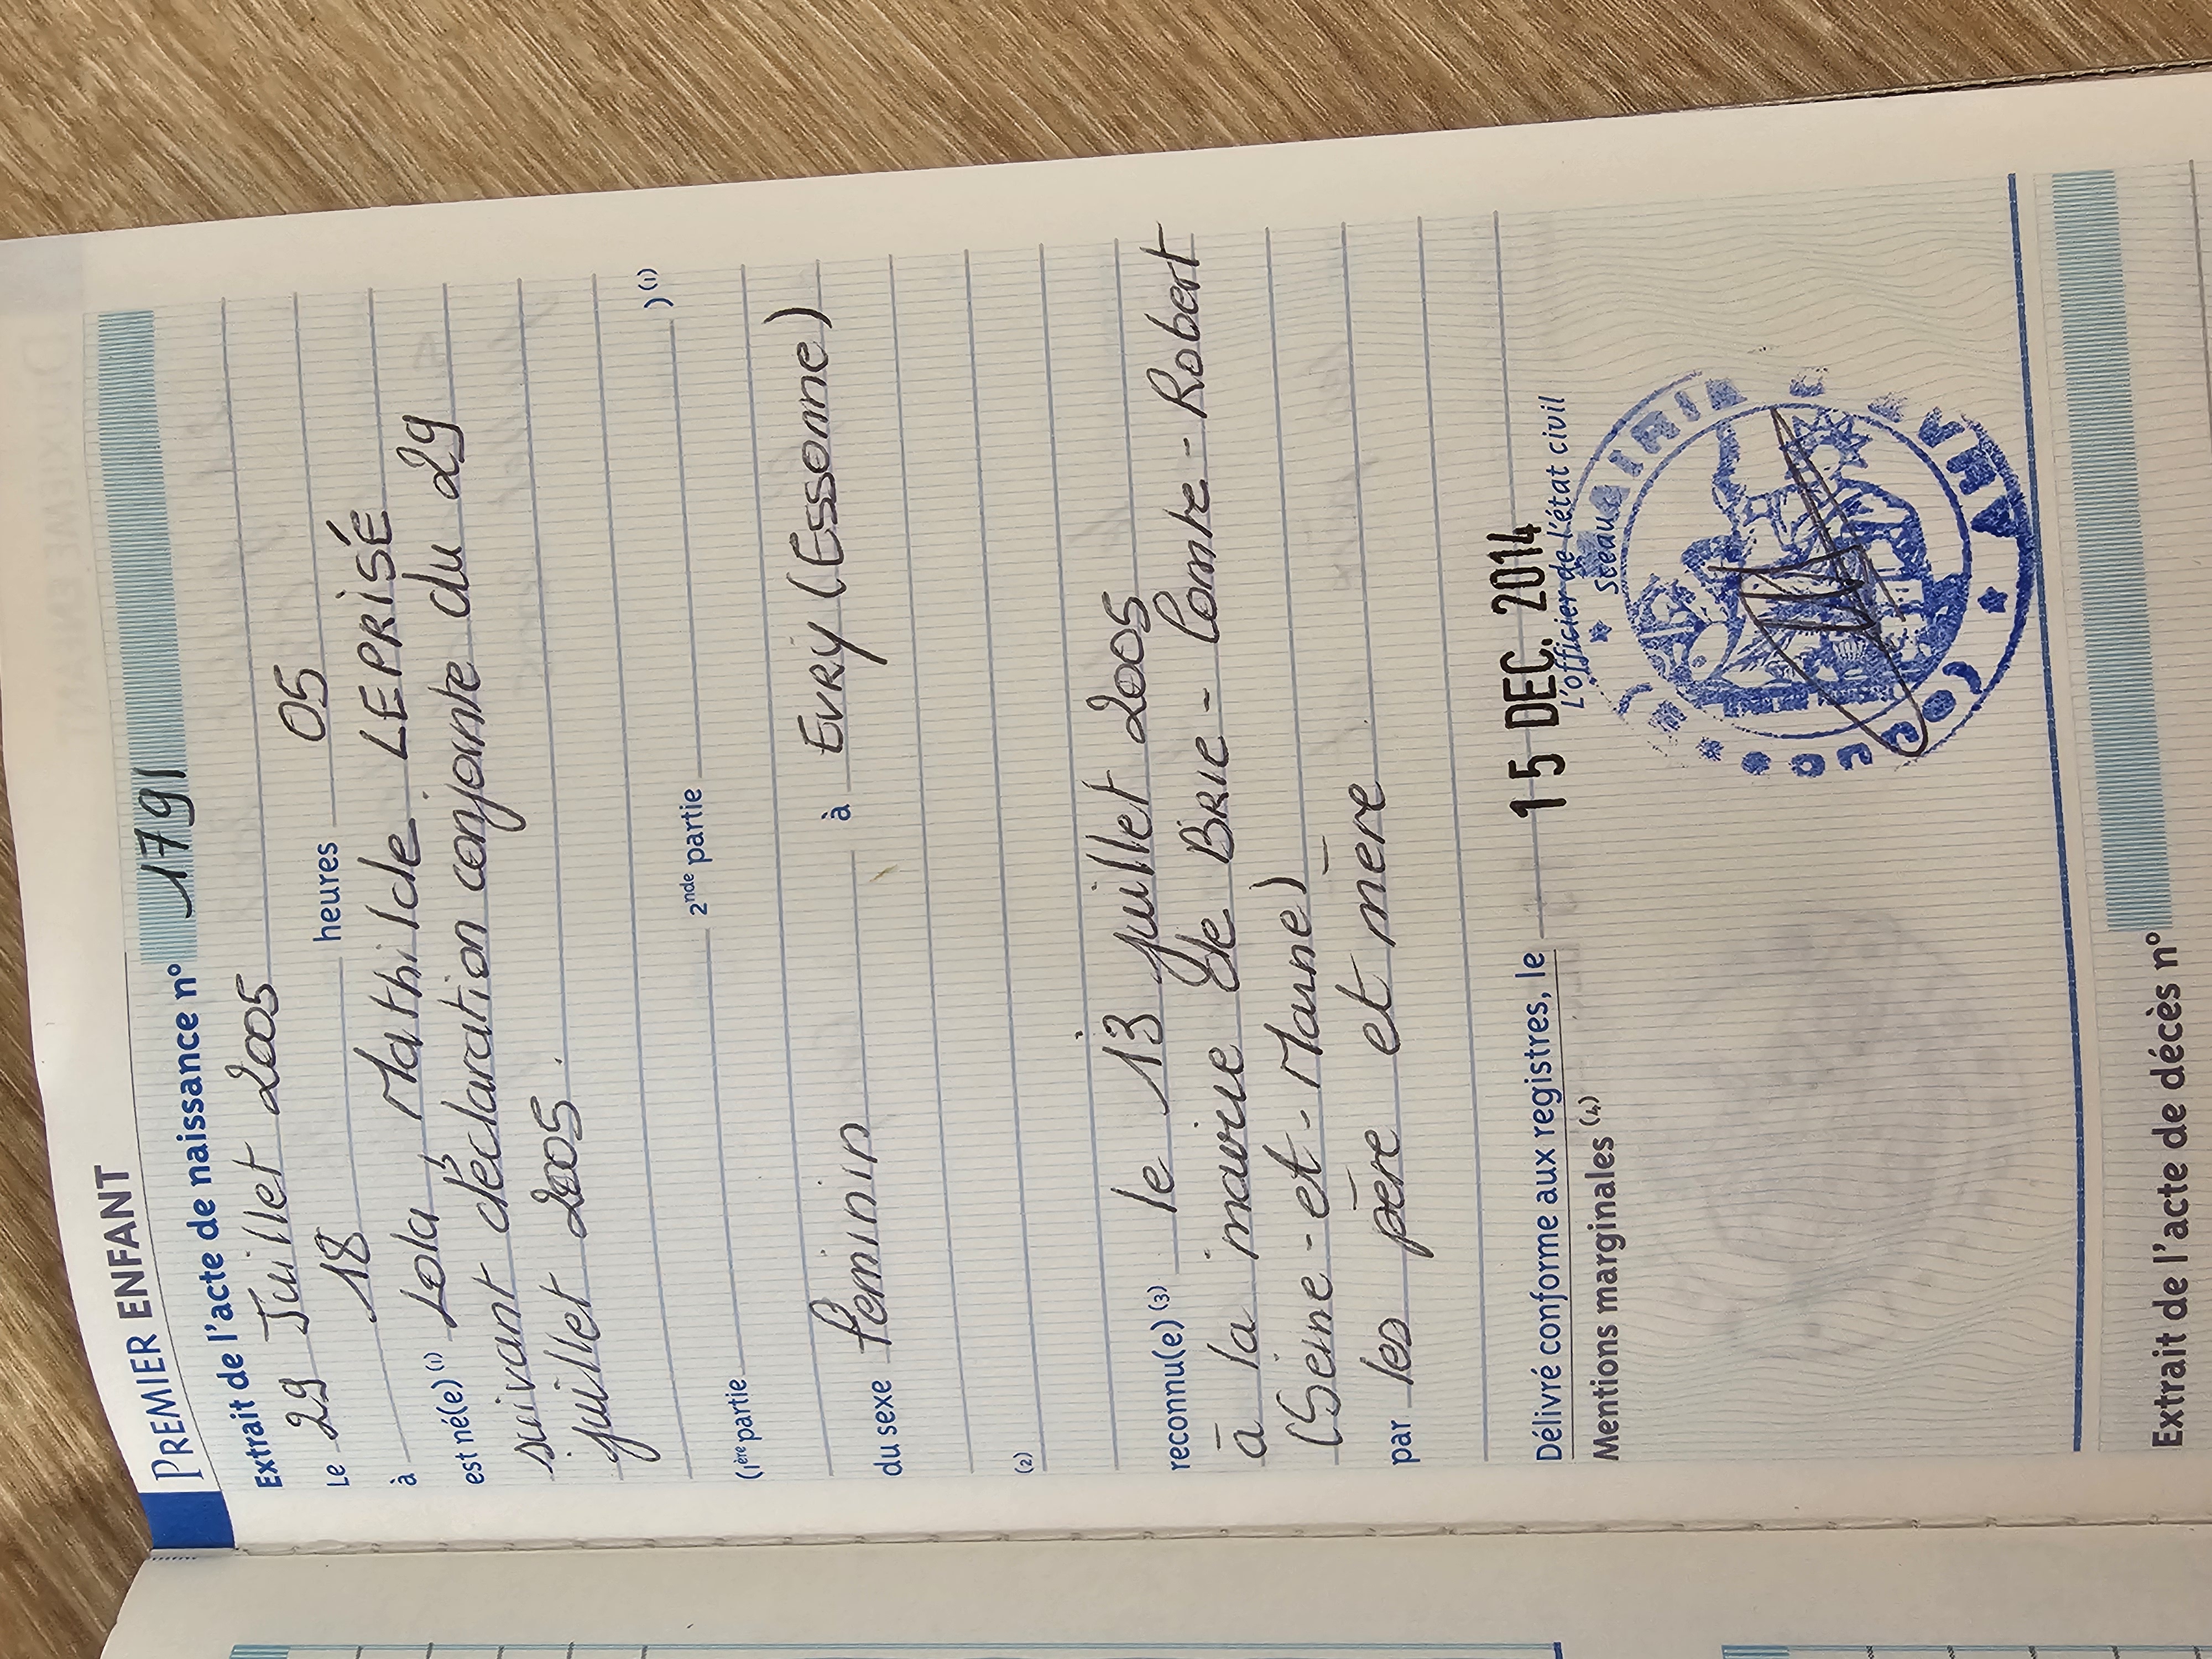 PREMIER ENFANT
Extrait de l'acte de naissance n° 1791
Le 29 Juillet 2005
à 18 heures 05
est né(e) (1) Lola, Mathilde LEPRISÉ
suivant déclaration conjointe du 29
juillet 2005.
(1ère partie 2nde partie )(1)
du sexe féminin à EVRY (Essonne)
(2)
reconnu(e) (3) le 13 juillet 2005
à la mairie de BRIE-Comte-Robert
(Seine-et-Marne)
par les père et mère
Délivré conforme aux registres, le 15 DEC. 2014
Mentions marginales (4)
L'officier de l'état civil
Sceau
MAIRIE
Extrait de l'acte de décès n°